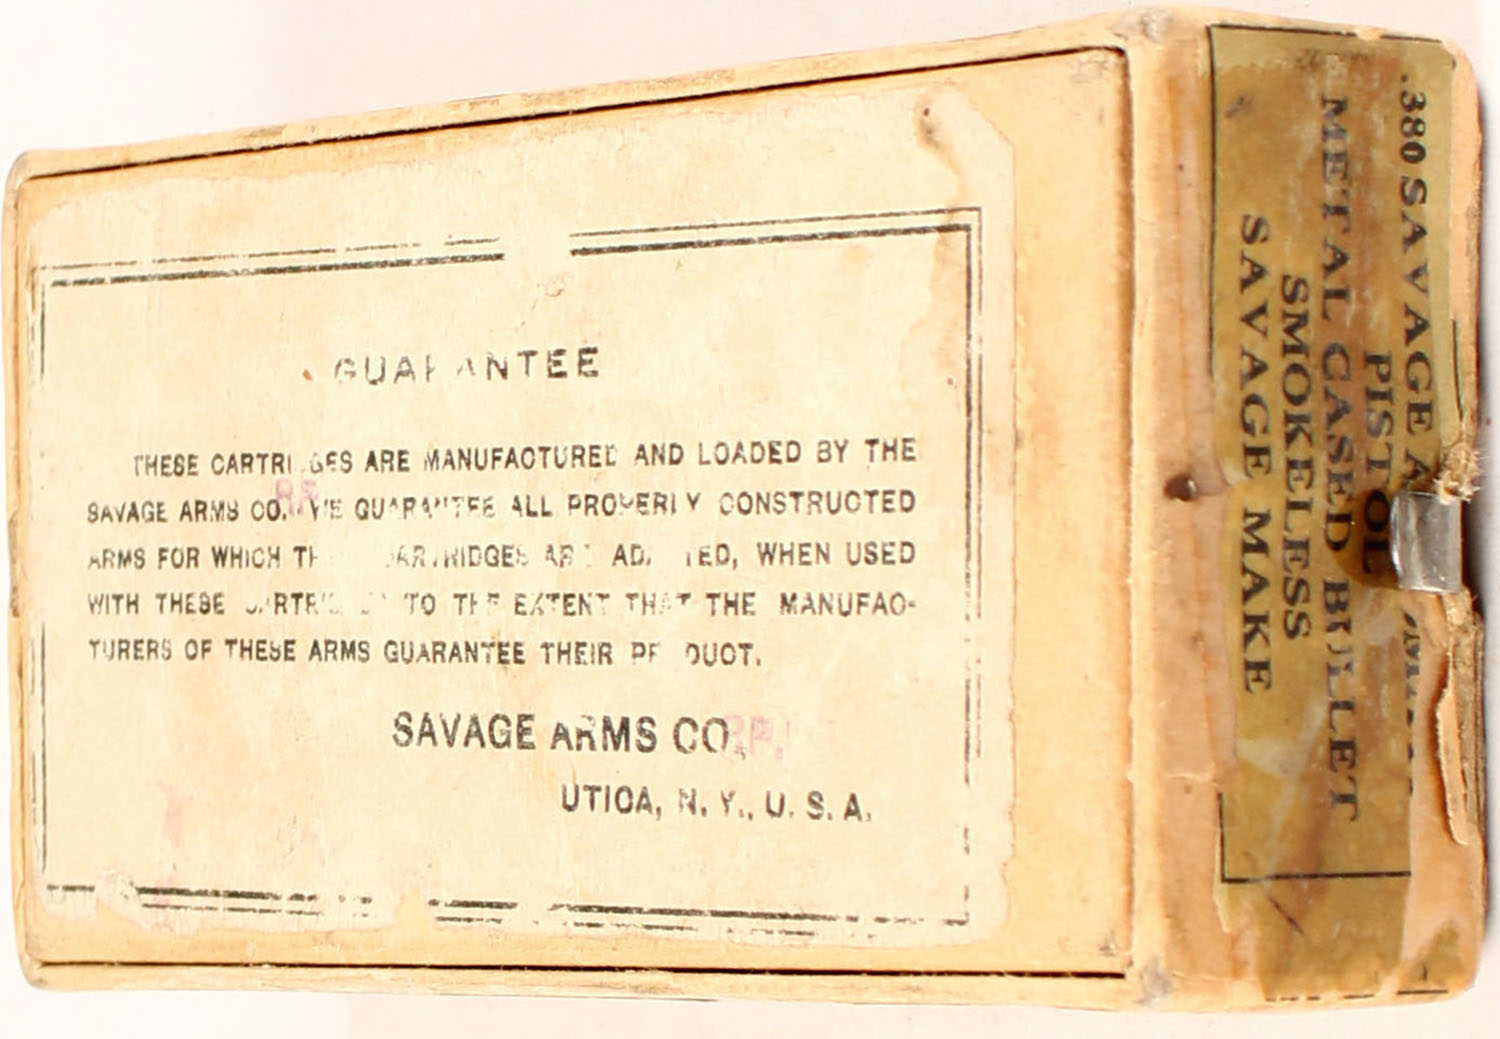 GUARANTEE
THESE CARTRIDGES ARE MANUFACTURED AND LOADED BY THE
SAVAGE ARMS CORP. WE GUARANTEE ALL PROPERLY CONSTRUCTED
ARMS FOR WHICH THESE CARTRIDGES ARE ADAPTED, WHEN USED
WITH THESE CARTRIDGES TO THE EXTENT THAT THE MANUFAC-
TURERS OF THESE ARMS GUARANTEE THEIR PRODUCT.
SAVAGE ARMS CORP.
UTICA, N. Y., U. S. A.
.380 SAVAGE
PISTOL
METAL CASED BULLET
SMOKELESS
SAVAGE MAKE